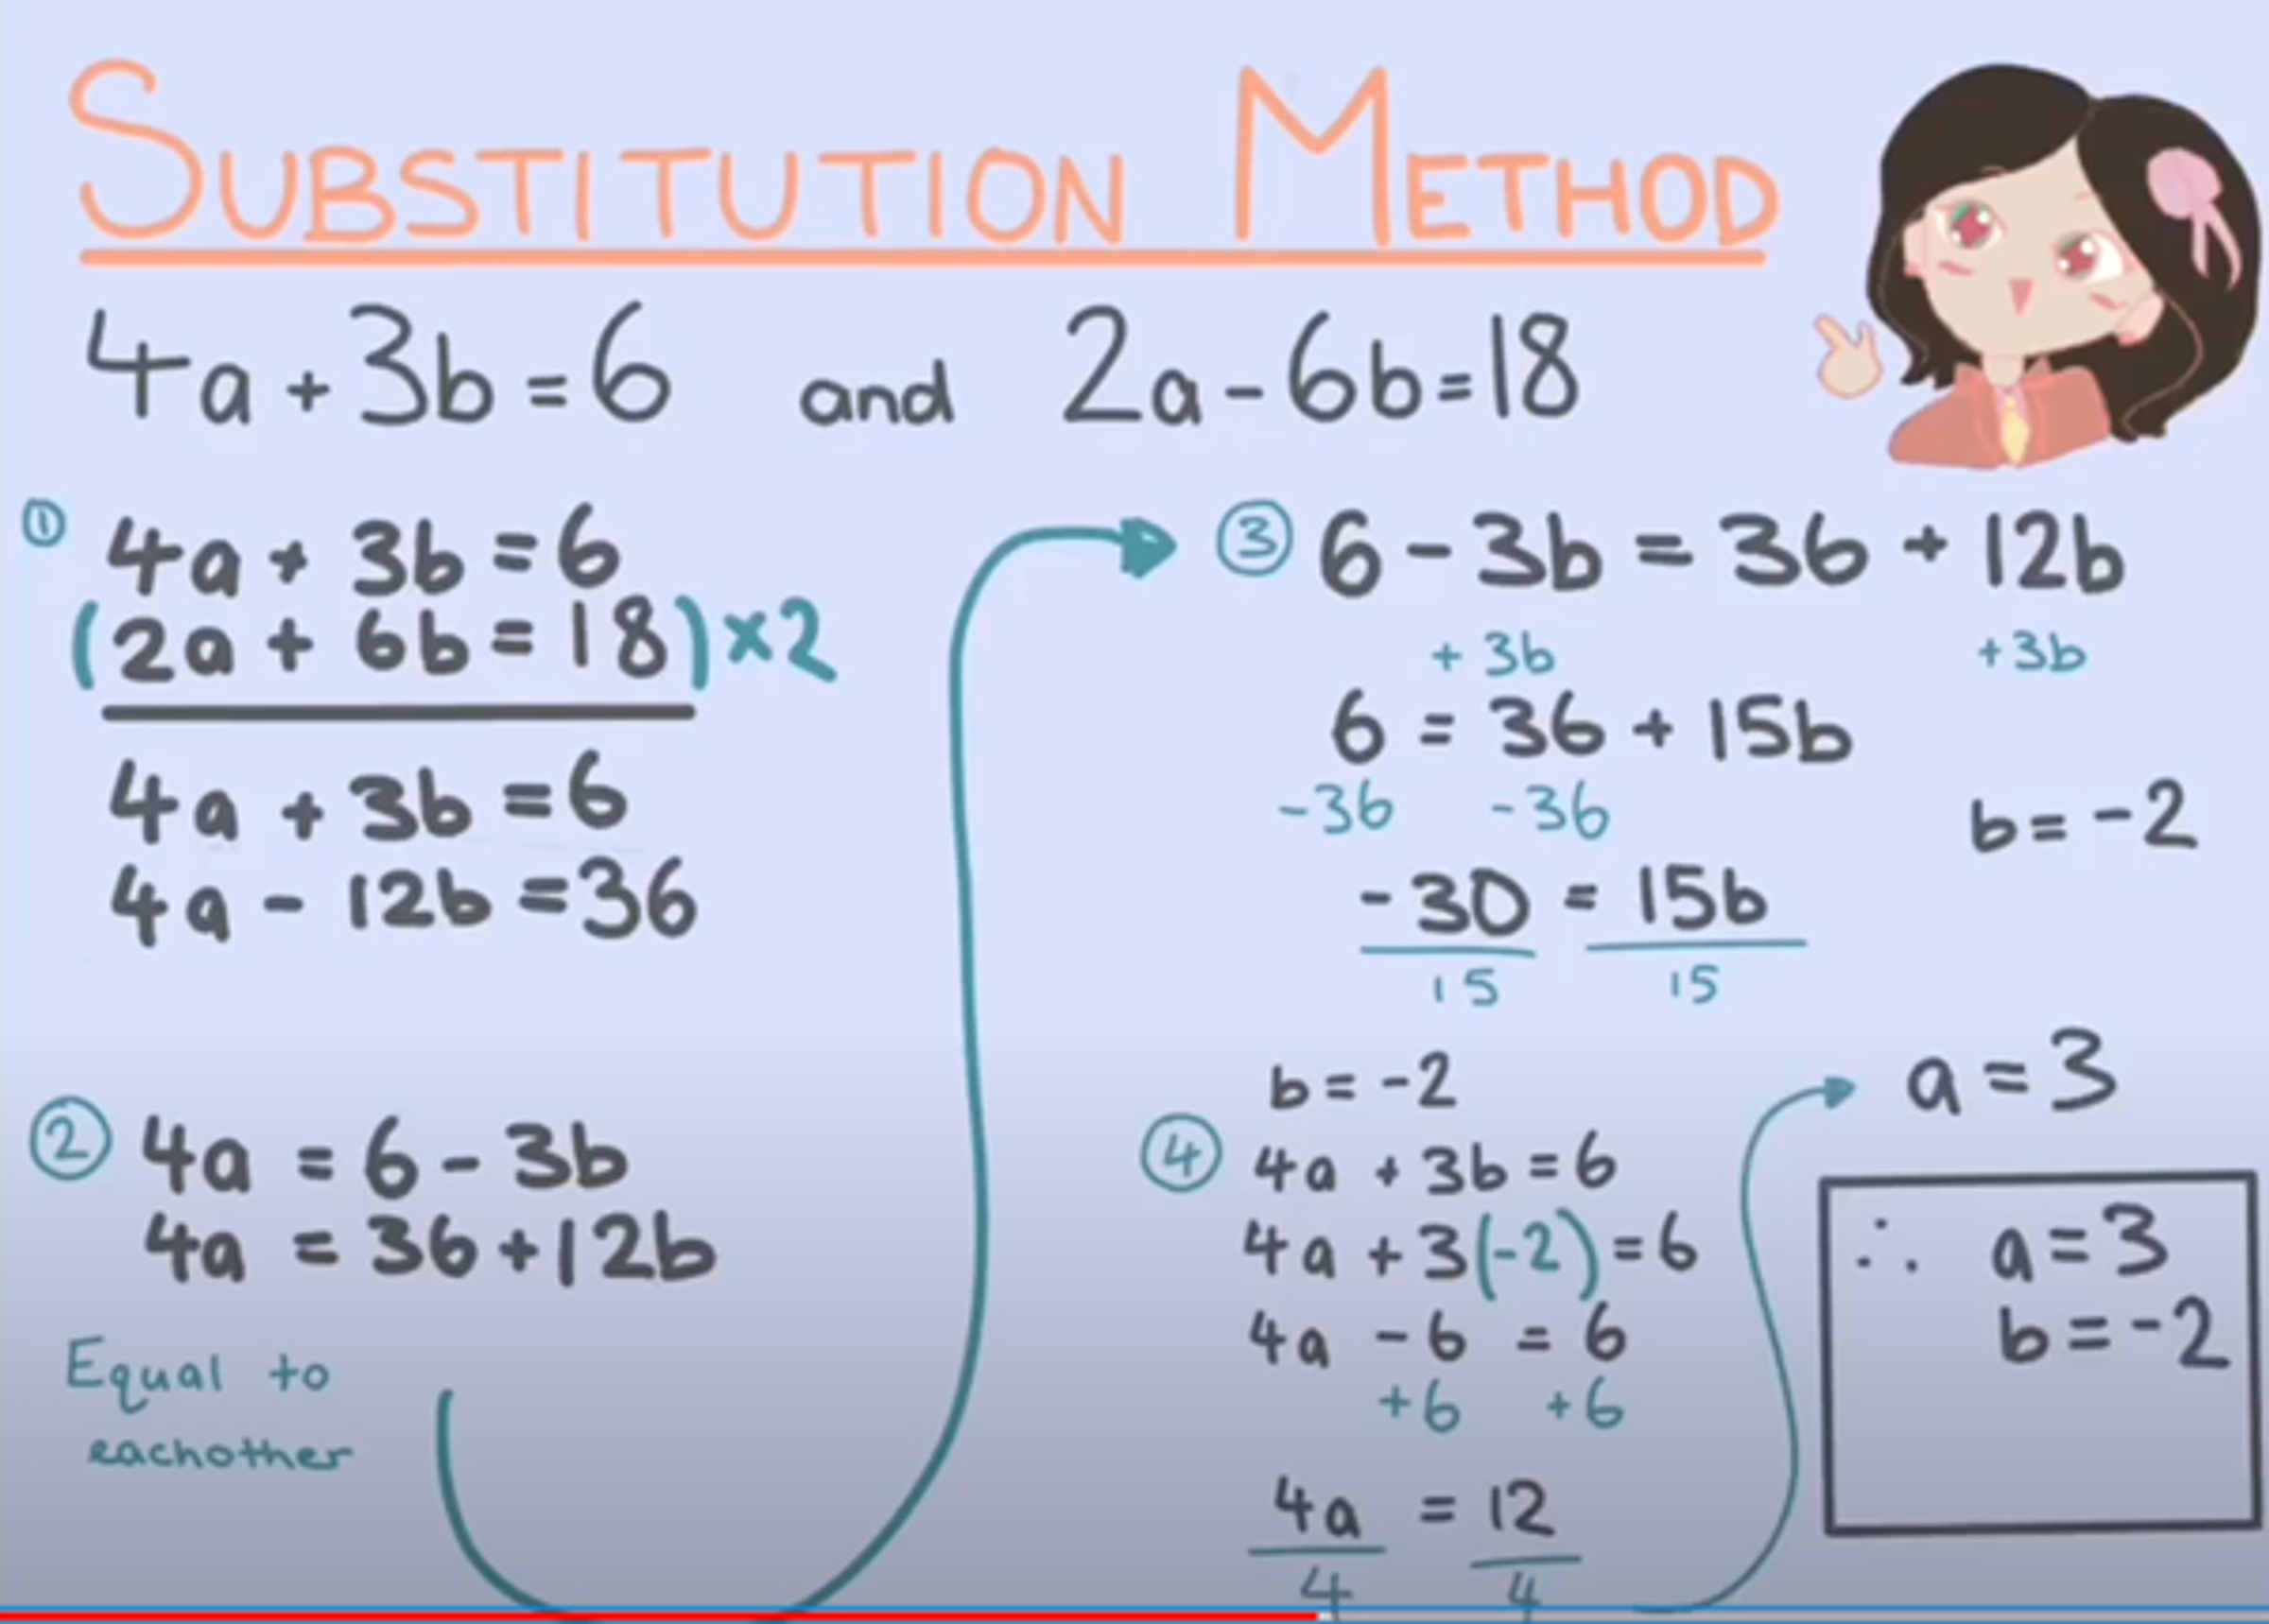 SUBSTITUTION METHOD
4a + 3b = 6 and 2a - 6b = 18
① 4a + 3b = 6
(2a + 6b = 18) ×2
4a + 3b = 6
4a - 12b = 36
② 4a = 6 - 3b
4a = 36 + 12b
Equal to
eachother
③ 6 - 3b = 36 + 12b
+ 3b + 3b
6 = 36 + 15b
-36 -36
-30 = 15b
15 15
b = -2
b = -2
④ 4a + 3b = 6
4a + 3(-2) = 6
4a - 6 = 6
+6 +6
4a = 12
4 4
a = 3
∴ a = 3
b = -2